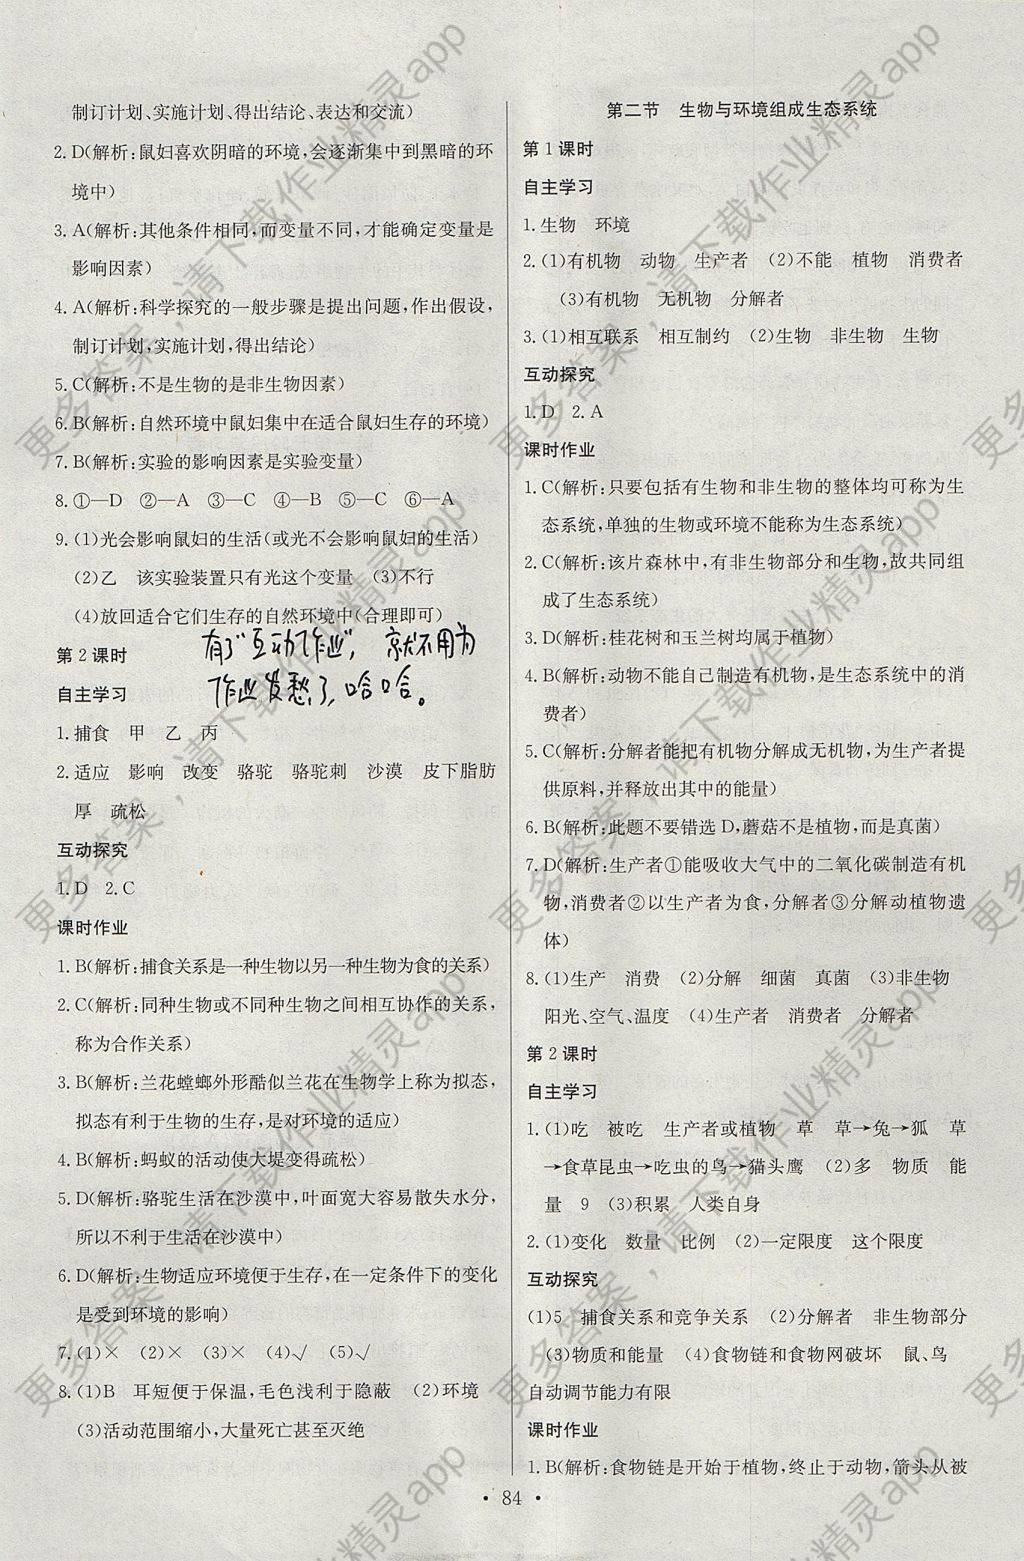 制订计划、实施计划、得出结论、表达和交流)
2. D(解析:鼠妇喜欢阴暗的环境,会逐渐集中到黑暗的环
境中)
3. A(解析:其他条件相同,而变量不同,才能确定变量是
影响因素)
4. A(解析:科学探究的一般步骤是提出问题,作出假设,
制订计划,实施计划,得出结论)
5. C(解析:不是生物的是非生物因素)
6. B(解析:自然环境中鼠妇集中在适合鼠妇生存的环境)
7. B(解析:实验的影响因素是实验变量)
8. ①—D ②—A ③—C ④—B ⑤—C ⑥—A
9. (1)光会影响鼠妇的生活(或光不会影响鼠妇的生活)
(2)乙 该实验装置只有光这个变量 (3)不行
(4)放回适合它们生存的自然环境中(合理即可)
有了"互动作业",就不用为
作业发愁了,哈哈。
第 2 课时
自主学习
1. 捕食 甲 乙 丙
2. 适应 影响 改变 骆驼 骆驼刺 沙漠 皮下脂肪
厚 疏松
互动探究
1. D 2. C
课时作业
1. B(解析:捕食关系是一种生物以另一种生物为食的关系)
2. C(解析:同种生物或不同种生物之间相互协作的关系,
称为合作关系)
3. B(解析:兰花螳螂外形酷似兰花在生物学上称为拟态,
拟态有利于生物的生存,是对环境的适应)
4. B(解析:蚂蚁的活动使大堤变得疏松)
5. D(解析:骆驼生活在沙漠中,叶面宽大容易散失水分,
所以不利于生活在沙漠中)
6. D(解析:生物适应环境便于生存,在一定条件下的变化
是受到环境的影响)
7. (1)× (2)× (3)× (4)√ (5)√
8. (1)B 耳短便于保温,毛色浅利于隐蔽 (2)环境
(3)活动范围缩小,大量死亡甚至灭绝
第二节 生物与环境组成生态系统
第 1 课时
自主学习
1. 生物 环境
2. (1)有机物 动物 生产者 (2)不能 植物 消费者
(3)有机物 无机物 分解者
3. (1)相互联系 相互制约 (2)生物 非生物 生物
互动探究
1. D 2. A
课时作业
1. C(解析:只要包括有生物和非生物的整体均可称为生
态系统,单独的生物或环境不能称为生态系统)
2. C(解析:该片森林中,有非生物部分和生物,故共同组
成了生态系统)
3. D(解析:桂花树和玉兰树均属于植物)
4. B(解析:动物不能自己制造有机物,是生态系统中的消
费者)
5. C(解析:分解者能把有机物分解成无机物,为生产者提
供原料,并释放出其中的能量)
6. B(解析:此题不要错选 D,蘑菇不是植物,而是真菌)
7. D(解析:生产者①能吸收大气中的二氧化碳制造有机
物,消费者②以生产者为食,分解者③分解动植物遗
体)
8. (1)生产 消费 (2)分解 细菌 真菌 (3)非生物
阳光、空气、温度 (4)生产者 消费者 分解者
第 2 课时
自主学习
1. (1)吃 被吃 生产者或植物 草 草→兔→狐 草
→食草昆虫→吃虫的鸟→猫头鹰 (2)多 物质 能
量 9 (3)积累 人类自身
2. (1)变化 数量 比例 (2)一定限度 这个限度
互动探究
(1)5 捕食关系和竞争关系 (2)分解者 非生物部分
(3)物质和能量 (4)食物链和食物网破坏 鼠、鸟
自动调节能力有限
课时作业
1. B(解析:食物链是开始于植物,终止于动物,箭头从被
· 84 ·
更多答案,请下载作业精灵app